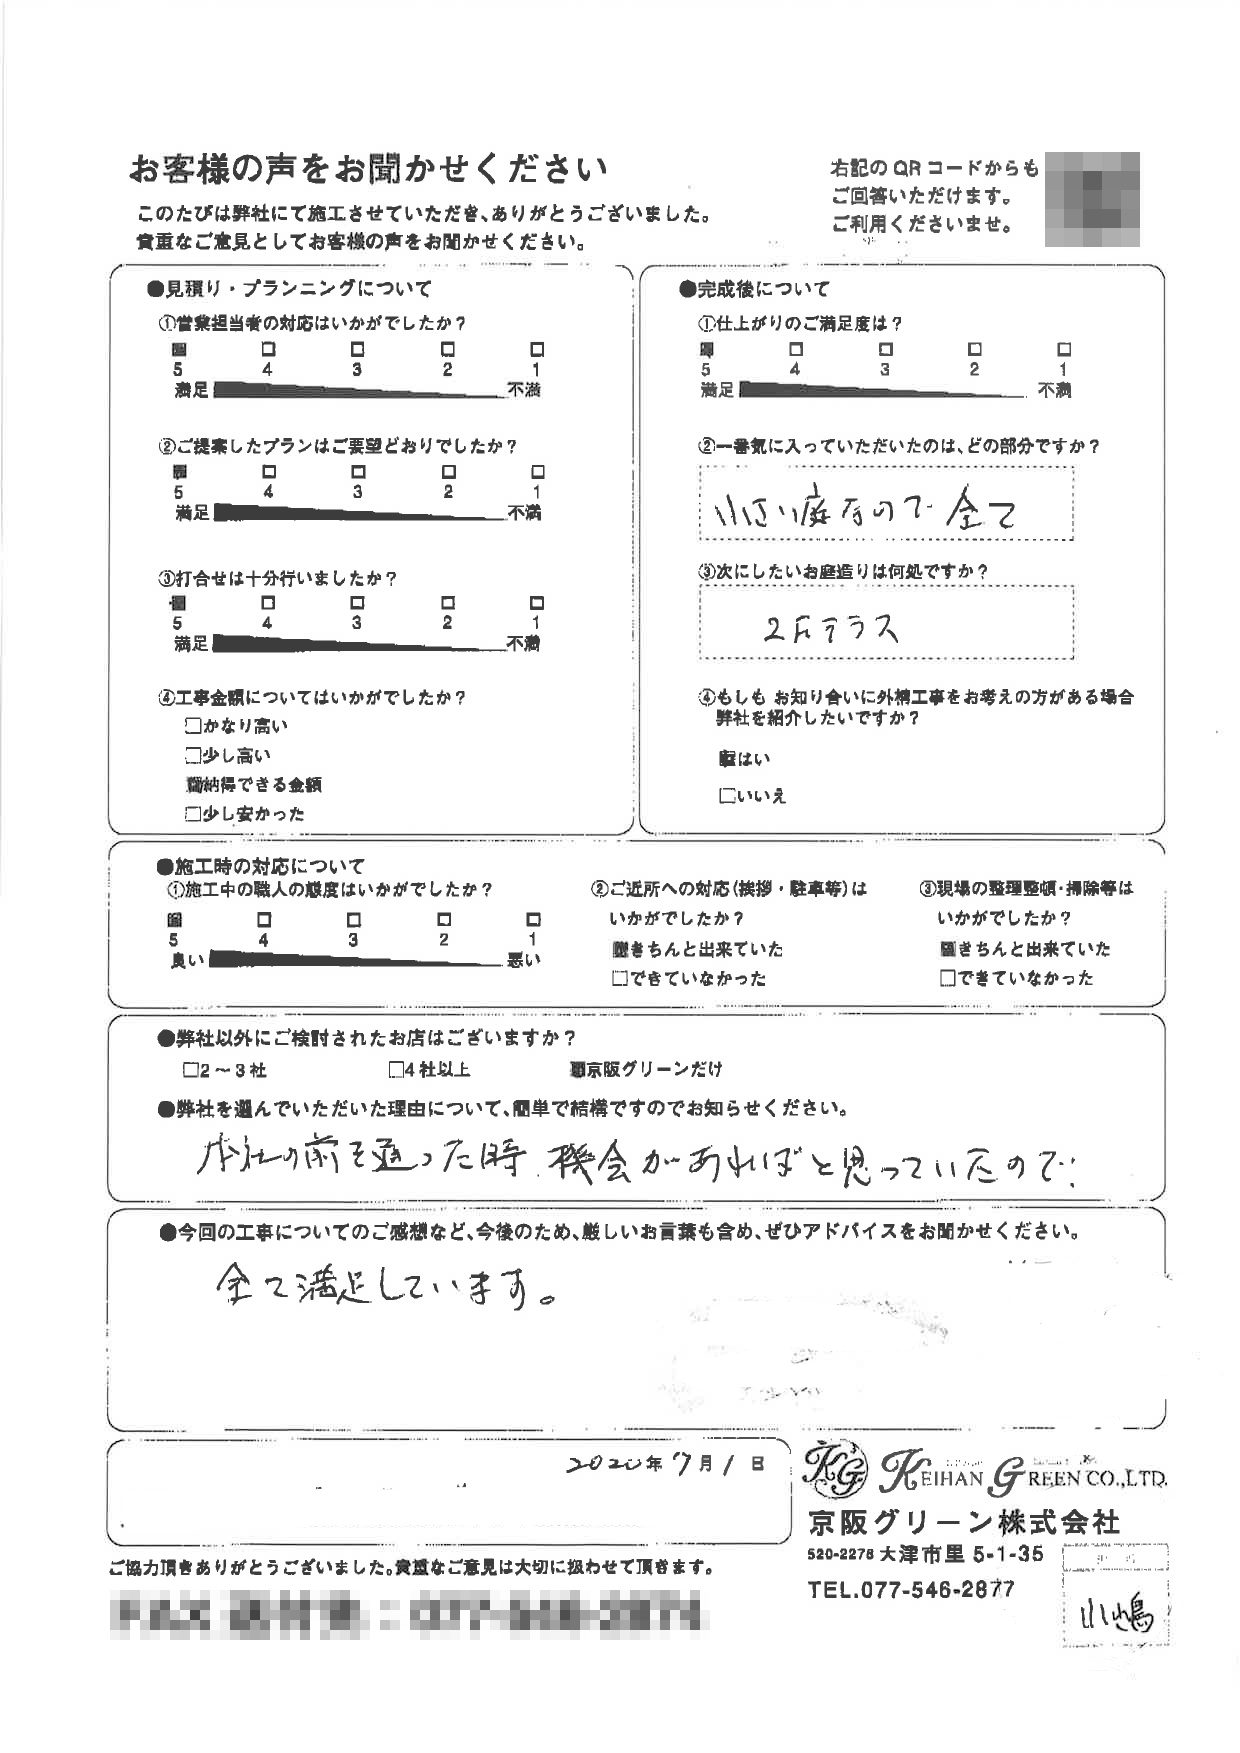 お客様の声をお聞かせください
このたびは弊社にて施工させていただき、ありがとうございました。
貴重なご意見としてお客様の声をお聞かせください。
右記のQRコードからも
ご回答いただけます。
ご利用くださいませ。
●見積り・プランニングについて
①営業担当者の対応はいかがでしたか?
■ □ □ □ □
5 4 3 2 1
満足 不満
②ご提案したプランはご要望どおりでしたか?
■ □ □ □ □
5 4 3 2 1
満足 不満
③打合せは十分行いましたか?
■ □ □ □ □
5 4 3 2 1
満足 不満
④工事金額についてはいかがでしたか?
□かなり高い
□少し高い
■納得できる金額
□少し安かった
●完成後について
①仕上がりのご満足度は?
■ □ □ □ □
5 4 3 2 1
満足 不満
②一番気に入っていただいたのは、どの部分ですか?
小さい庭なので全て
③次にしたいお庭造りは何処ですか?
2Fテラス
④もしも お知り合いに外構工事をお考えの方がある場合
弊社を紹介したいですか?
■はい
□いいえ
●施工時の対応について
①施工中の職人の態度はいかがでしたか?
■ □ □ □ □
5 4 3 2 1
良い 悪い
②ご近所への対応(挨拶・駐車等)は
いかがでしたか?
■きちんと出来ていた
□できていなかった
③現場の整理整頓・掃除等は
いかがでしたか?
■きちんと出来ていた
□できていなかった
●弊社以外にご検討されたお店はございますか?
□2~3社 □4社以上 ■京阪グリーンだけ
●弊社を選んでいただいた理由について、簡単で結構ですのでお知らせください。
本社の前を通った時、機会があればと思っていたので。
●今回の工事についてのご感想など、今後のため、厳しいお言葉も含め、ぜひアドバイスをお聞かせください。
全て満足しています。
2020年7月1日
KG KEIHAN GREEN CO.,LTD.
京阪グリーン株式会社
520-2278 大津市里 5-1-35
TEL.077-546-2877
小嶋
ご協力頂きありがとうございました。貴重なご意見は大切に扱わせて頂きます。